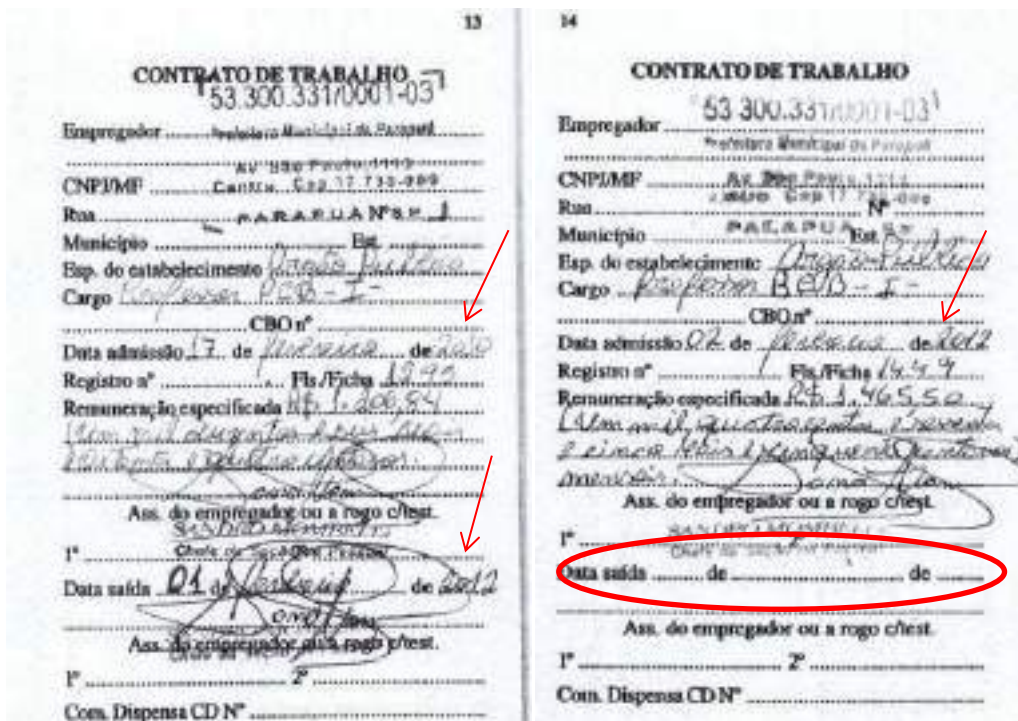 13
CONTRATO DE TRABALHO
53.300.331/0001-03
Empregador Prefeitura Municipal de Parapuã
Av São Paulo 1113
CNPJ/MF Centro Cep 17 730-000
Rua PARAPUA Nº S.P.
Município Est.
Esp. do estabelecimento Orgão Público
Cargo Professor PEB-I-
CBO nº
Data admissão 17 de fevereiro de 2010
Registro nº Fls./Ficha 1292
Remuneração especificada R$ 1.206,84
(Um mil duzentos e seis reais
oitenta e quatro
Ass. do empregador ou a rogo c/test.
1º
Chefe da Seção de Pessoal
Data saída 01 de fevereiro de 2012
Ass. do empregador ou a rogo c/test.
1º 2º
Com. Dispensa CD Nº
14
CONTRATO DE TRABALHO
53.300.331/0001-03
Empregador
Prefeitura Municipal de Parapuã
CNPJ/MF Av São Paulo 1113
Rua Centro Cep 17 730-000 Nº
Município PARAPUA SP Est.
Esp. do estabelecimento Orgão Público
Cargo Professor PEB-I-
CBO nº
Data admissão 02 de fevereiro de 2012
Registro nº Fls./Ficha 1449
Remuneração especificada R$ 1.465,50
(Um mil, quatrocentos e sessenta
e cinco reais e cinquenta centavos)
mensais.
Ass. do empregador ou a rogo c/test.
1º
Chefe da Seção de Pessoal
Data saída de de
Ass. do empregador ou a rogo c/test.
1º 2º
Com. Dispensa CD Nº